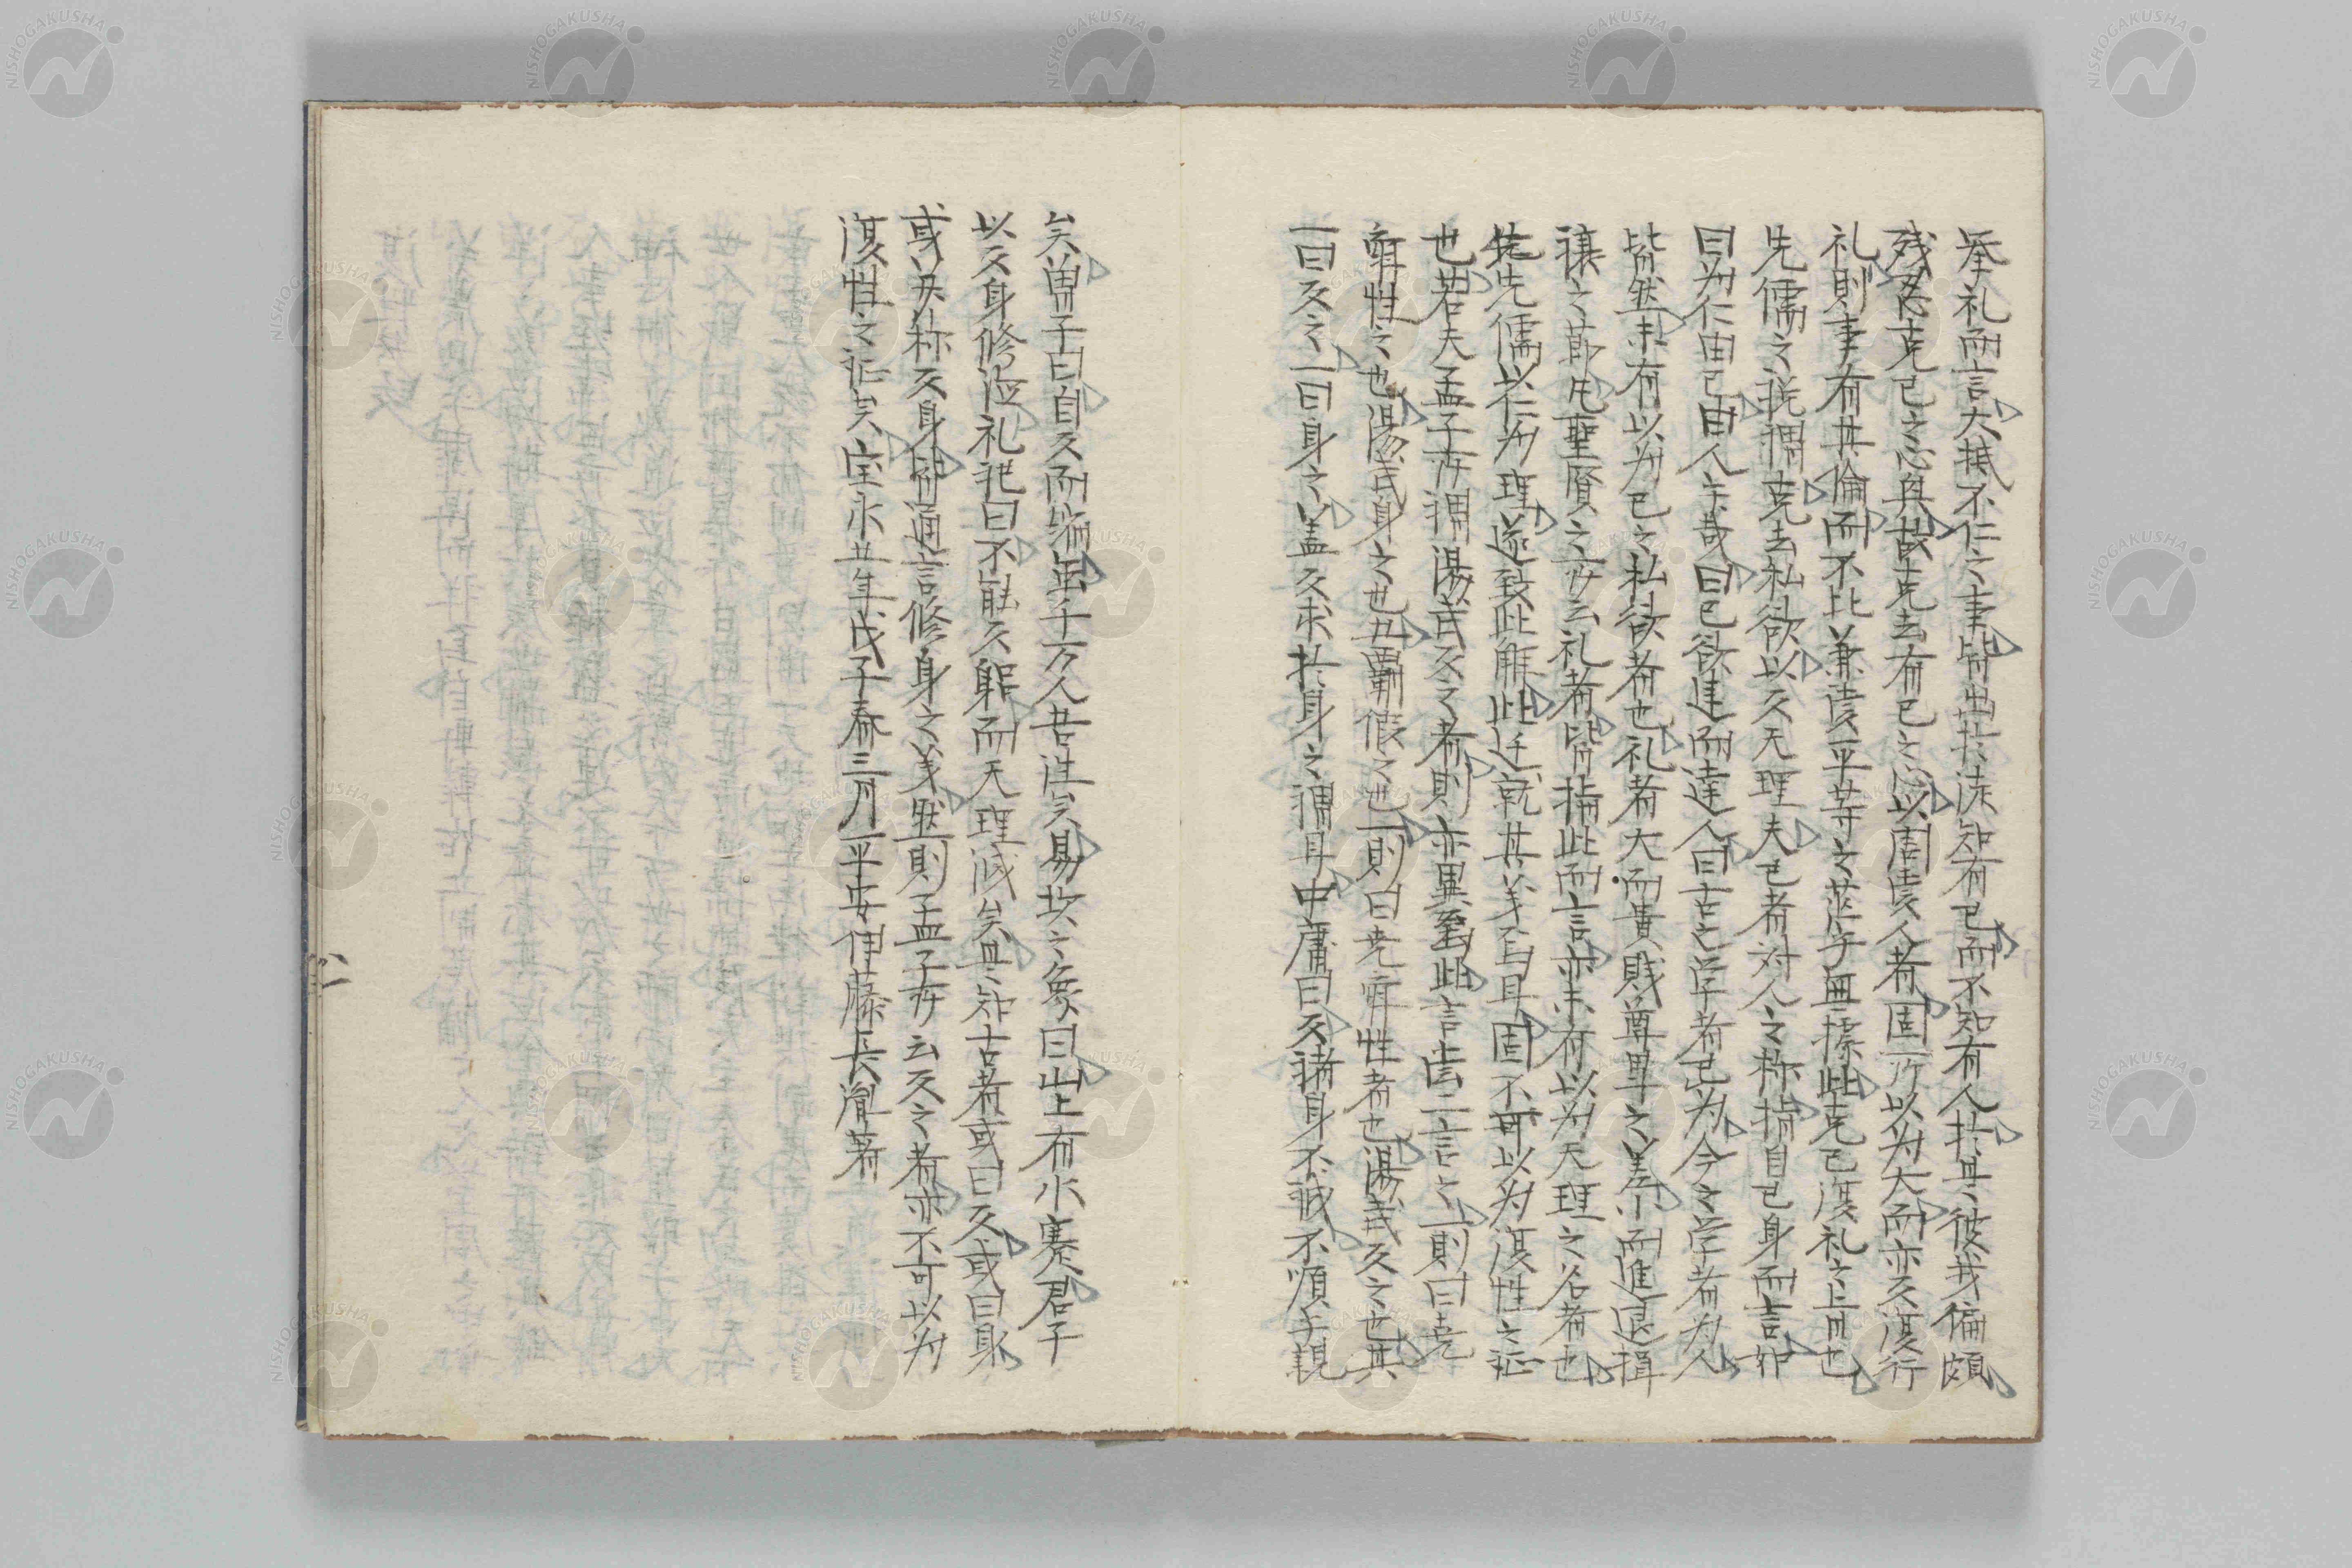 挙礼而言大抵不仁之事皆出於徒知有己而不知有人於其彼我偏頗
残忍克己之忿与故克去有己之心以周㐮人者固所以为大而亦反復行
礼則事有其倫而不比兼愛平等之茫乎無據此克己復礼之旨也
先儒之説謂克去私欲以反天理夫己者対人之称指自己身而言如
曰为仁由己由人乎哉曰己欲達而達人曰古之学者己为今之学者为人
皆然未有以为己之私欲者也礼者大而貴賤尊卑之差小而進退揖
譲之節凡聖賢之所云礼者皆指此而言亦未有以为天理之名者也
先儒以仁为理遂致此解此迁就其義而耳固不可以为復性之証
也若夫孟子所謂湯武反之者則亦異於此言凡二言之一則曰堯
舜性之也湯武身之也五覇假之也一則曰堯舜性者也湯武反之也其
一曰反之一曰身之盖反求於身之謂耳中庸曰反諸身不誠不順乎親
矣曽子曰自反而縮雖千万人吾往矣易蹇之象曰山上有水蹇君子
以反身修徳礼記曰不能反躬而天理滅矣是知古者或曰反或曰身
或以称反身皆通言修身之義然則孟子所云反之者亦不可以为
復性之証矣宝永五年戊子春三月平安伊藤長胤著